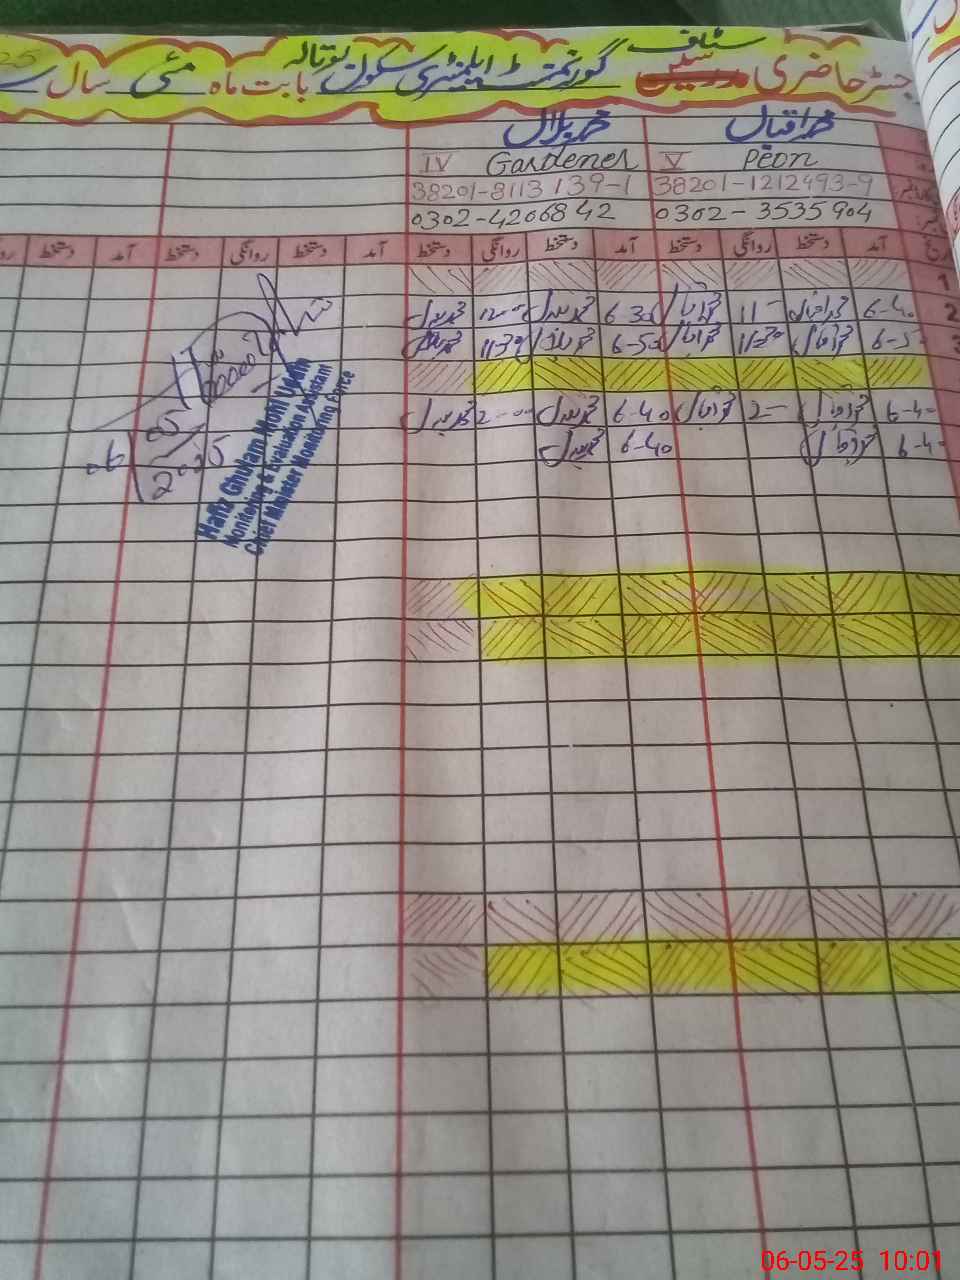 رجسٹر حاضری سٹاف گورنمنٹ ایلیمنٹری سکول بابت ماہ مئی سال 25
محمد اقبال محمد بلال
V Peon IV Gardener
38201-1212493-9 38201-8113139-1
0302-3535904 0302-4206842
آمد دستخط روانگی دستخط آمد دستخط روانگی دستخط آمد دستخط روانگی دستخط آمد دستخط
1
2 6-40 محمد اقبال 11- محمد اقبال 6-30 محمد بلال 12-00 محمد بلال
3 6-5 محمد اقبال 11-30 محمد اقبال 6-50 محمد بلال 11-30 محمد بلال
6-40 محمد اقبال 2- محمد اقبال 6-40 محمد بلال 2-00 محمد بلال
6-40 محمد اقبال 6-40 محمد بلال
06
05
2025
Hafiz Ghulam Mohi Uddin
Monitoring & Evaluation Assistant
Chief Minister Monitoring Force
06-05-25 10:01